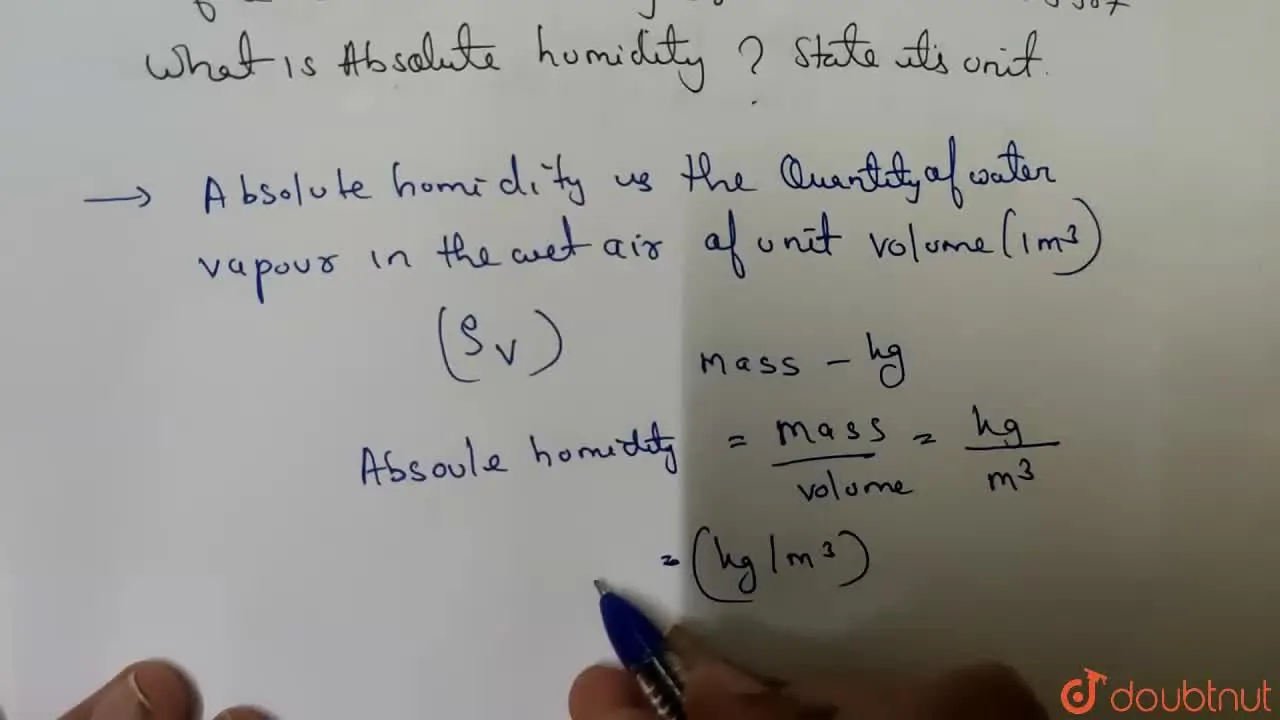 What is Absolute humidity ? State it's unit.
→ Absolute homidity is the Quantity of water
vapour in the wet air of unit volume (1m³)
(ρv)
mass - kg
Absoule homidity = mass/volume = kg/m³
= (kg/m³)
doubtnut